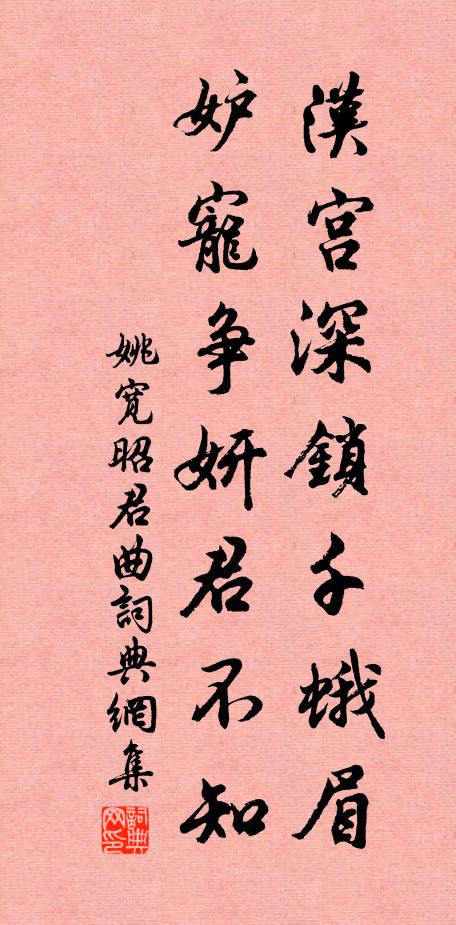 漢宮深鎖千蛾眉
妒寵爭妍君不知
姚寬昭君曲詞典網集
詞典網印